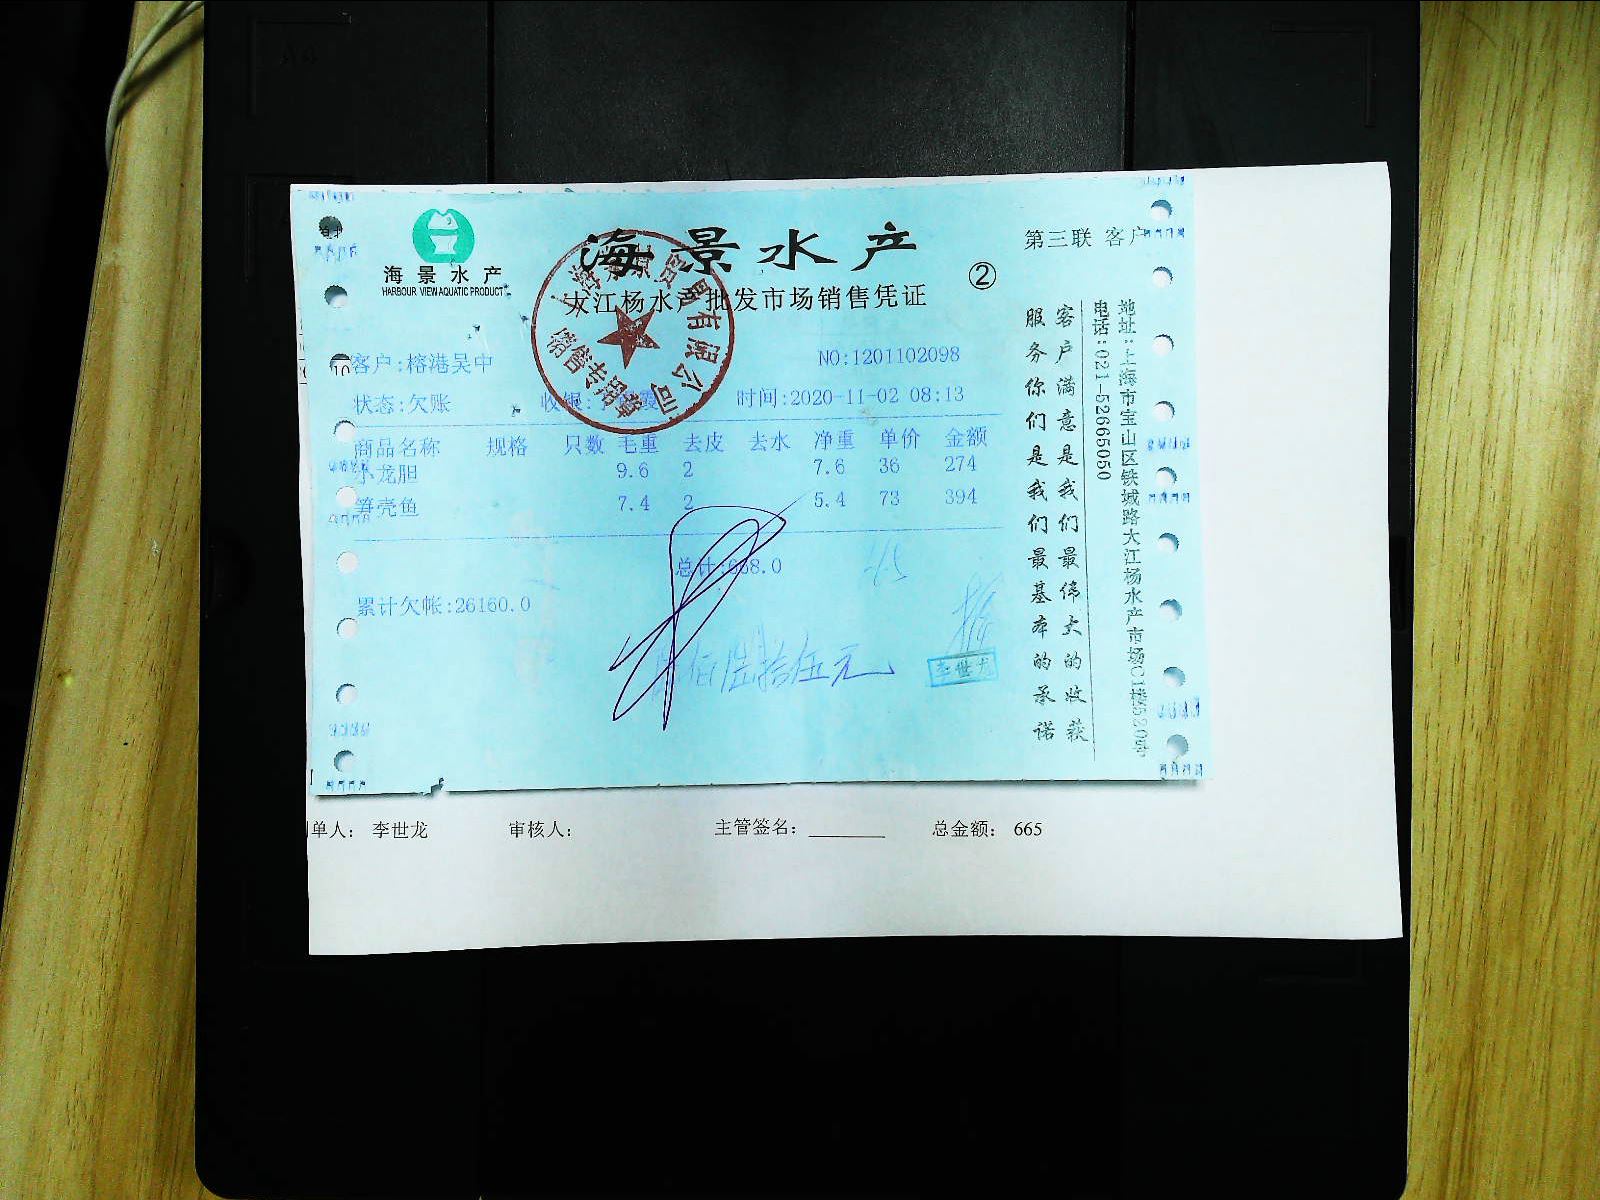 海景水产
HARBOUR VIEW AQUATIC PRODUCT
海景水产
大江杨水产批发市场销售凭证
②
第三联 客户
客户:榕港吴中
NO:1201102098
状态:欠账
收银:
时间:2020-11-02 08:13
商品名称 规格 只数 毛重 去皮 去水 净重 单价 金额
小龙胆 9.6 2 7.6 36 274
笋壳鱼 7.4 2 5.4 73 394
总计:668.0
累计欠帐:26160.0
佰陆拾伍元
李世龙
贸易有限公司
销售专用章
客户满意是我们最伟大的收获
服务你们是我们最基本的承诺
地址:上海市宝山区铁城路大江杨水产市场C1楼520号
电话:021-52665050
单人: 李世龙 审核人: 主管签名: 总金额: 665